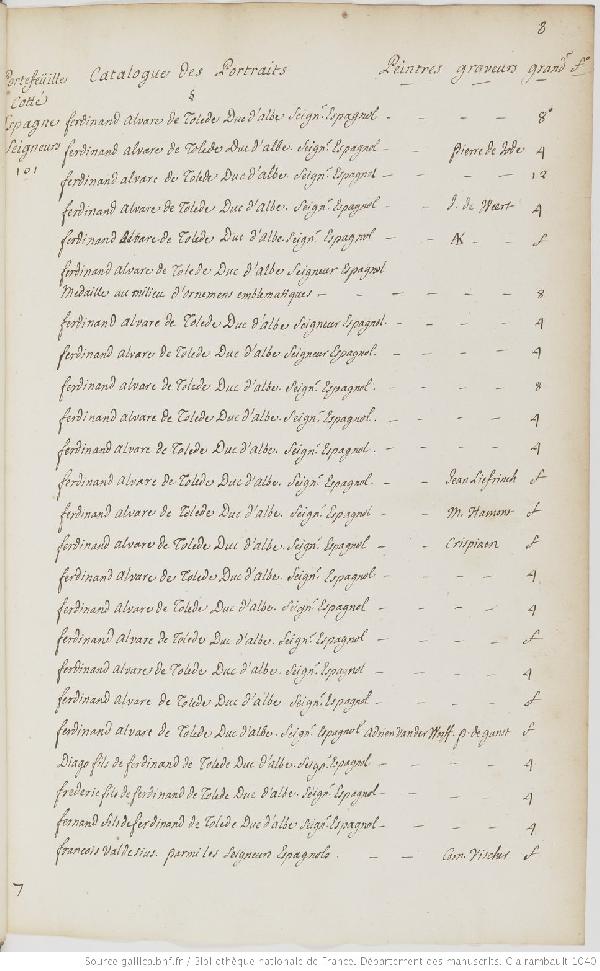 8
Portefeüille Cotté Espagne Seigneurs 101
Catalogue des Portraits Peintres graveurs grandr
§
ferdinand alvare de Tolede Duc d'albe Seignr Espagnol - - - 8°
ferdinand alvare de Tolede Duc d'albe. Seignr Espagnol - - Pierre de Jode 4
ferdinand alvare de Tolede Duc d'albe. Seignr Espagnol - - - 12
ferdinand alvare de Tolede Duc d'albe. Seignr Espagnol - - J. de Weert 4
ferdinand alvare de Tolede Duc d'albe. Seignr Espagnol - - AK - - f
ferdinand alvare de Tolede Duc d'albe Seigneur Espagnol
Medaille au milieu d'ornemens emblematiques - - - - - 8
ferdinand alvare de Tolede Duc d'albe Seigneur Espagnol. - - - - 4
ferdinand alvare de Tolede Duc d'albe Seigneur Espagnol. - - - - 4
ferdinand alvare de Tolede Duc d'albe. Seignr Espagnol. - - - - 8
ferdinand alvare de Tolede Duc d'albe. Seignr Espagnol. - - - - 4
ferdinand alvare de Tolede Duc d'albe. Seignr Espagnol. - - - - 4
ferdinand alvare de Tolede Duc d'albe. Seignr Espagnol. - - Jean Liefrinch f
ferdinand alvare de Tolede Duc d'albe. Seignr Espagnol - - M. Hamont f
ferdinand alvare de Tolede Duc d'albe. Seignr Espagnol - - Crispiaen f
ferdinand alvare de Tolede Duc d'albe. Seignr Espagnol - - - - 4
ferdinand alvare de Tolede Duc d'albe. Seignr Espagnol - - - - 4
ferdinand alvare de Tolede Duc d'albe. Seignr Espagnol - - - - f
ferdinand alvare de Tolede Duc d'albe. Seignr Espagnol - - - - 4
ferdinand alvare de Tolede Duc d'albe. Seignr Espagnol - - - - f
ferdinand alvare de Tolede Duc d'albe. Seignr Espagnol Adrien Vander Werff. p. de gunst f
Diago fils de ferdinand de Tolede Duc d'albe. Seignr Espagnol - - - - 4
frederic fils de ferdinand de Tolede Duc d'albe. Seignr Espagnol - - - - 4
fernand fils de ferdinand de Tolede Duc d'albe Seignr Espagnol - - - - 4
francois Valdesius. parmi les Seigneurs Espagnols. - - Corn. Vischer f
7
Source gallica.bnf.fr / Bibliothèque nationale de France. Département des manuscrits. Clairambault 1040